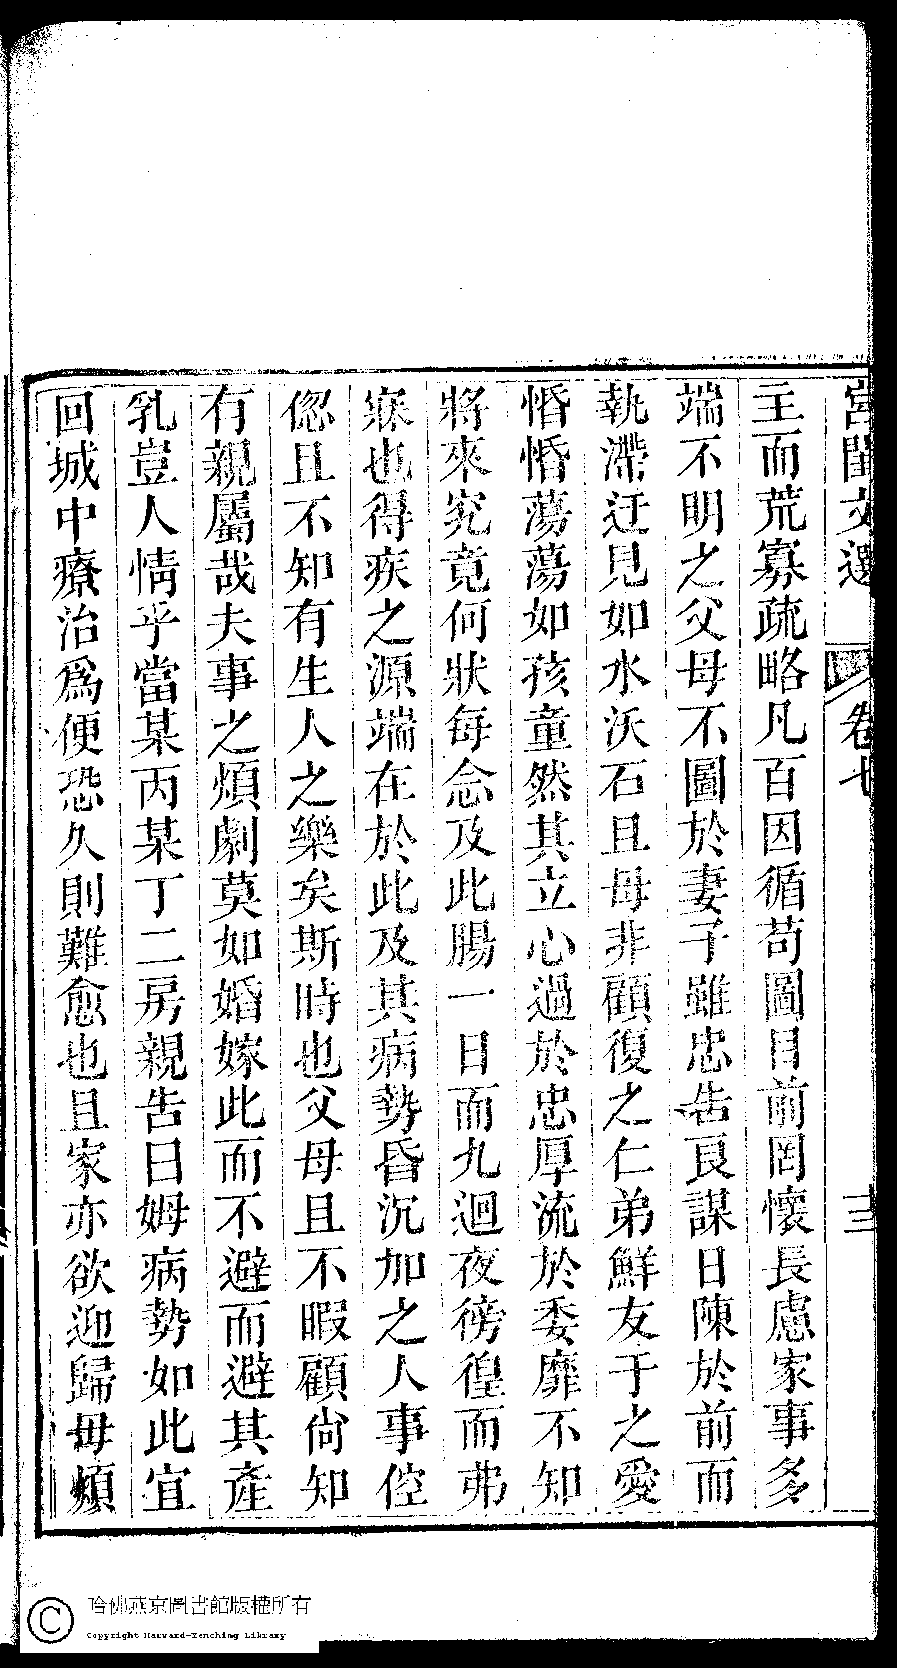 宮閨文選 卷七 十三
主而荒寡疏略凡百因循苟圖目前罔懷長慮家事多
端不明之父母不圖於妻子雖忠告良謀日陳於前而
執滯迂見如水沃石且毋非顧復之仁弟鮮友于之愛
惛惛蕩蕩如孩童然其立心過於忠厚流於委靡不知
將來究竟何狀每念及此腸一日而九迴夜徬徨而弗
寐也得疾之源端在於此及其病勢昏沉加之人事倥
偬且不知有生人之樂矣斯時也父母且不暇顧尙知
有親屬哉夫事之煩劇莫如婚嫁此而不避而避其產
乳豈人情乎當某丙某丁二房親告曰姆病勢如此宜
回城中療治爲便恐久則難愈也且家亦欲迎歸毋頻
哈佛燕京圖書館版權所有
Copyright Harvard-Yenching Library